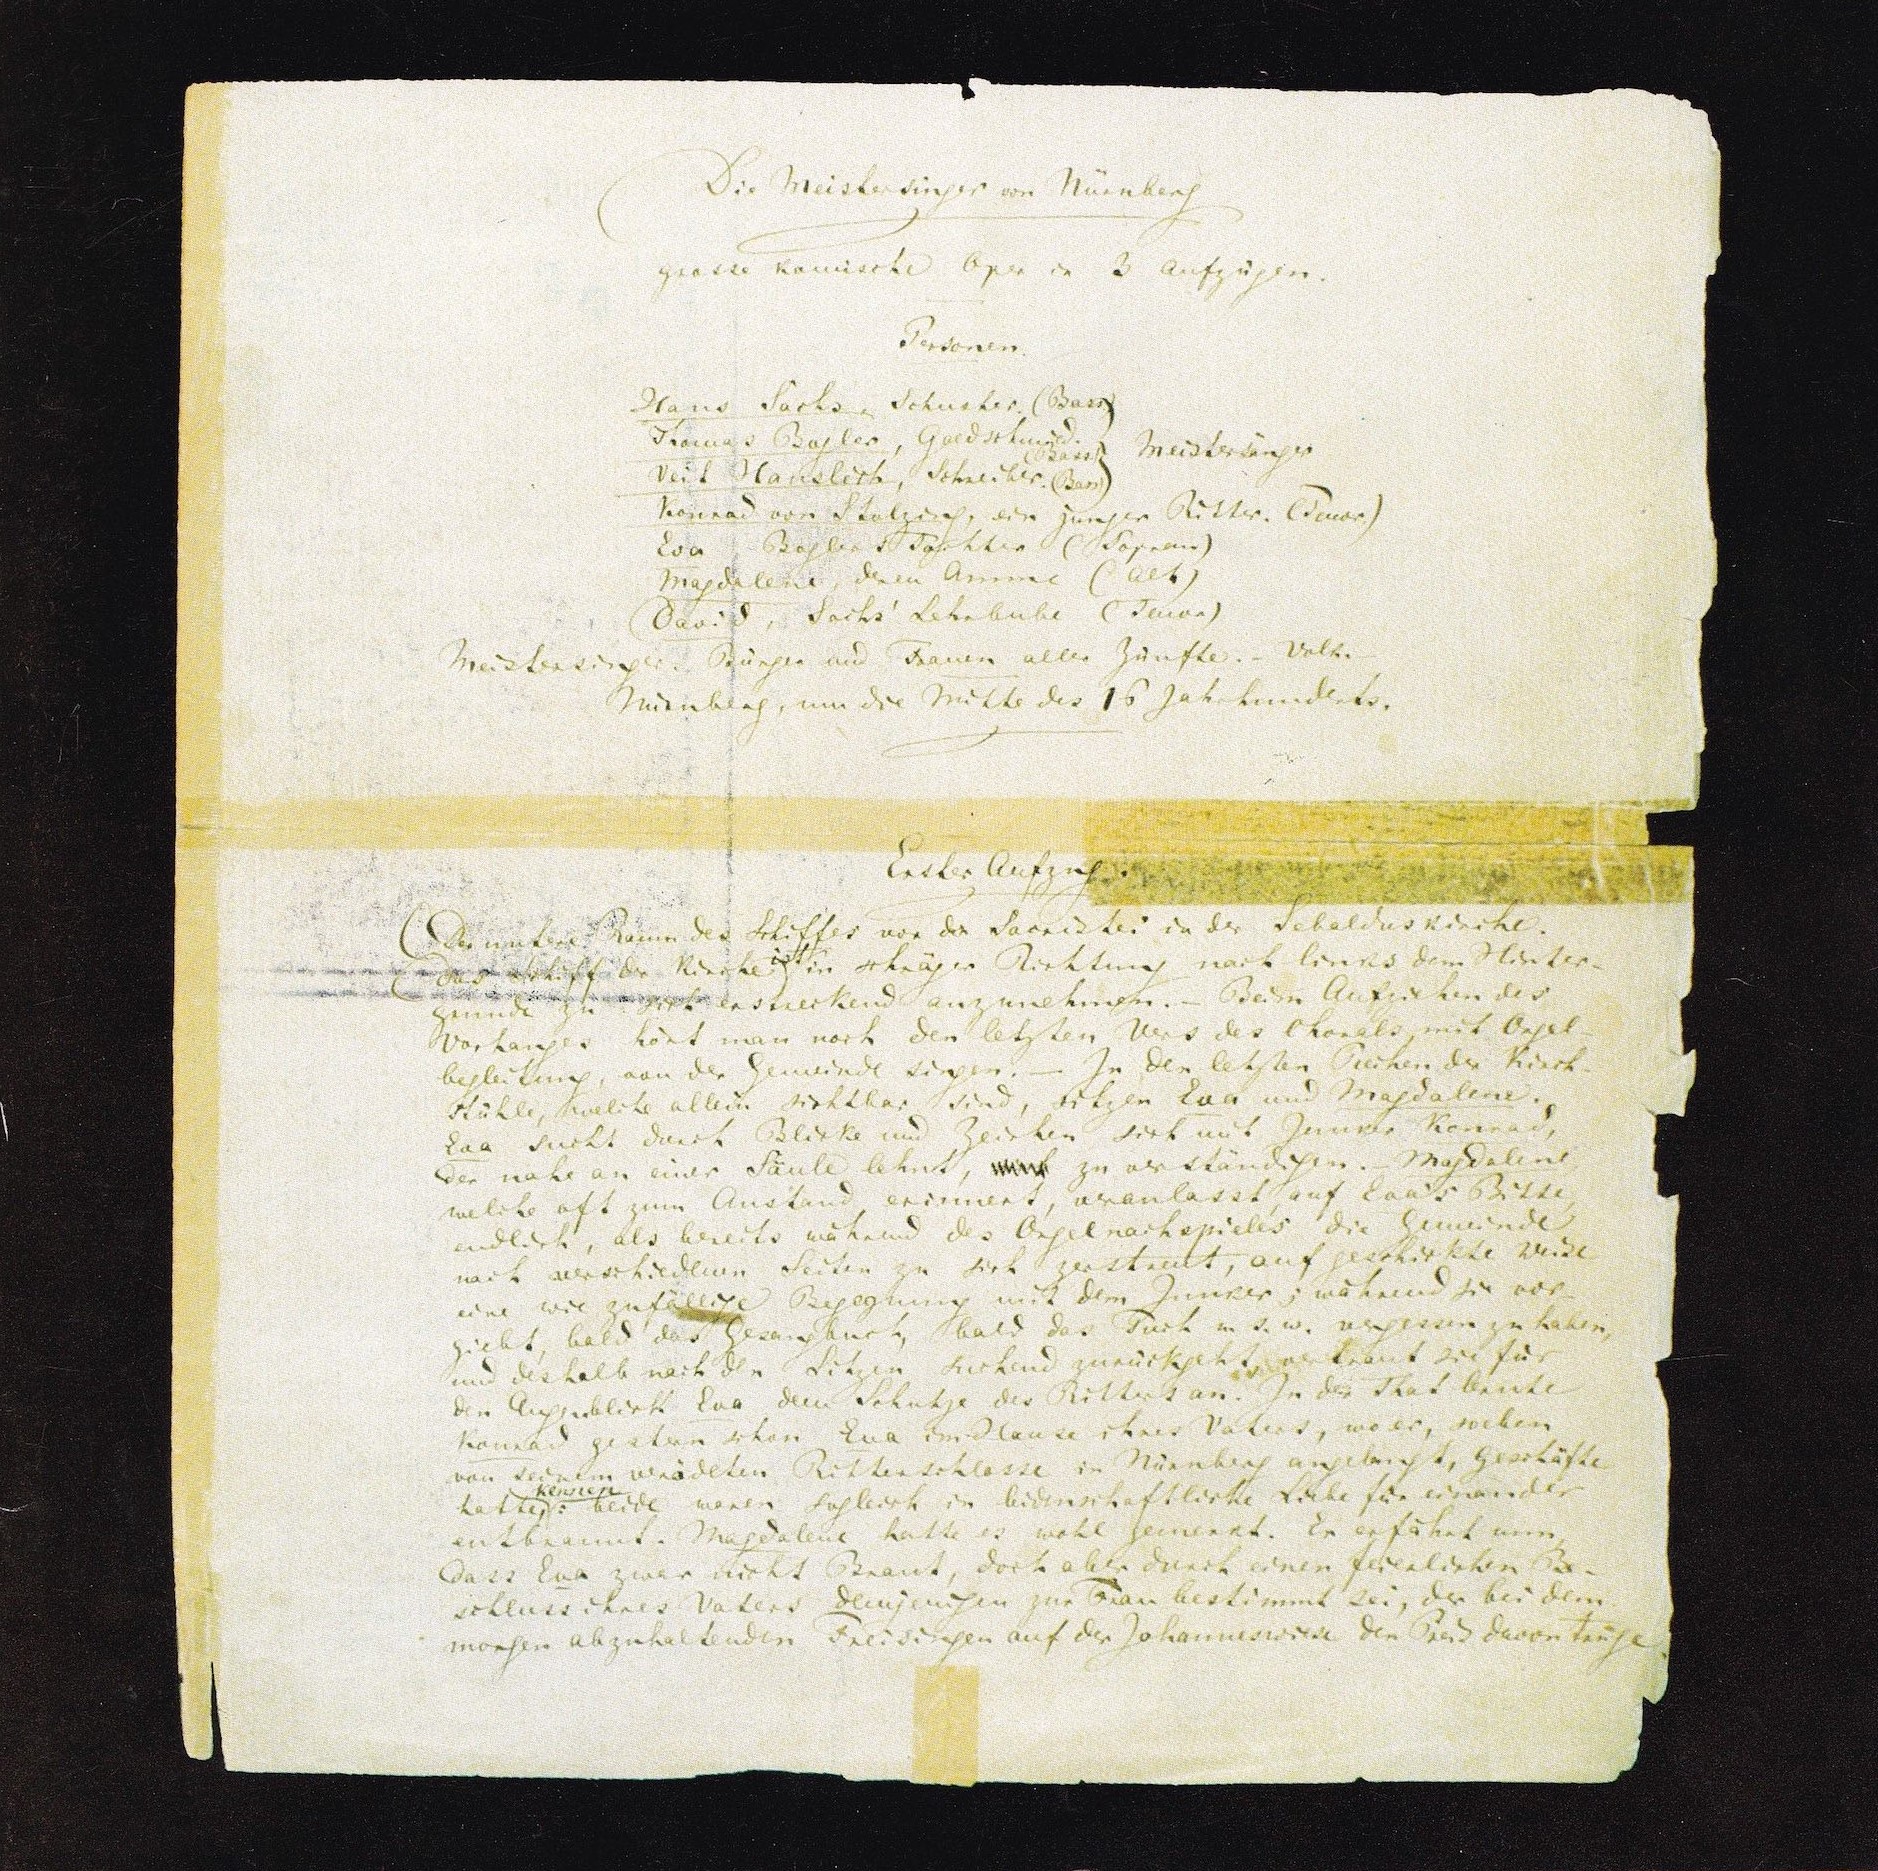 Die Meistersinger von Nürnberg
grosse komische Oper in 3 Aufzügen.
Personen.
Hans Sachs, Schuster. (Bass)
Thomas Bogler, Goldschmied. (Bass)
Meistersinger
Veit Hanslich, Schreiber. (Bass)
Konrad von Stolzing, ein junger Ritter. (Tenor)
Eva Bogler's Tochter (Sopran)
Magdalene, deren Amme (Alt)
David, Sachs' Lehrbube (Tenor)
Meistersinger. Bürger und Frauen aller Zünfte. – Volk. –
Nürnberg, um die Mitte des 16 Jahrhunderts.
Erster Aufzug.
(Der untere Raum des Schiffes vor der Sacristei in der Sebalduskirche.
Das Schiff der Kirche ist in schräger Richtung nach links dem Hinter-
grunde zu sich erstreckend anzunehmen. – Beim Aufziehen des
Vorhanges hört man noch den letzten Vers des Chorals, mit Orgel-
begleitung, von der Gemeinde singen. – In den letzten Reihen der Kirch-
stühle, welche allein sichtbar sind, sitzen Eva und Magdalene.
Eva sucht durch Blicke und Zeichen sich mit Junker Konrad,
der nahe an einer Säule lehnt, zu verständigen. Magdalene
welche oft zum Anstand erinnert, veranlasst, auf Eva's Bitte,
endlich, als bereits während des Orgelnachspieles die Gemeinde
nach verschiedenen Seiten zu sich zerstreut, auf geschickte Weise
eine wie zufällige Begegnung mit dem Junker; während sie vor-
giebt, bald das Gesangbuch, bald das Tuch u. s. w. vergessen zu haben,
und deshalb nach den Sitzen suchend zurückgeht, vertraut sie für
den Augenblick Eva dem Schutze des Ritters an. In der That lernte
Konrad gestern schon Eva im Hause ihres Vaters, wo er, soeben
von seinem verödeten Ritterschlosse in Nürnberg angelangt, Geschäfte
hatte, kennen: beide waren sogleich in leidenschaftliche Liebe für einander
entbrannt. Magdalene hatte es wohl gemerkt. Er erfährt nun,
dass Eva zwar nicht Braut, doch aber durch einen feierlichen Be-
schluss ihres Vaters demjenigen zur Frau bestimmt sei, der bei dem
morgen abzuhaltenden Freisingen auf der Johanneswiese den Preis davon trüge